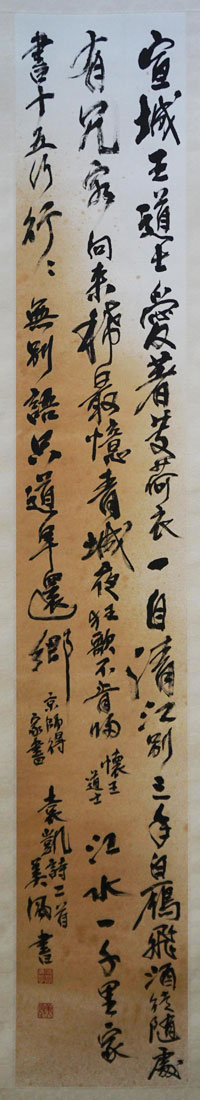 宣城王道士愛著芰荷衣一自清江別三年白鴈飛酒徒隨處
有客向来稀最憶青城夜狂歌不肯歸 懷王道士 江水一千里家
書十五行行〻無別語只道早還鄉 京師得家書 袁凱詩二首 美書